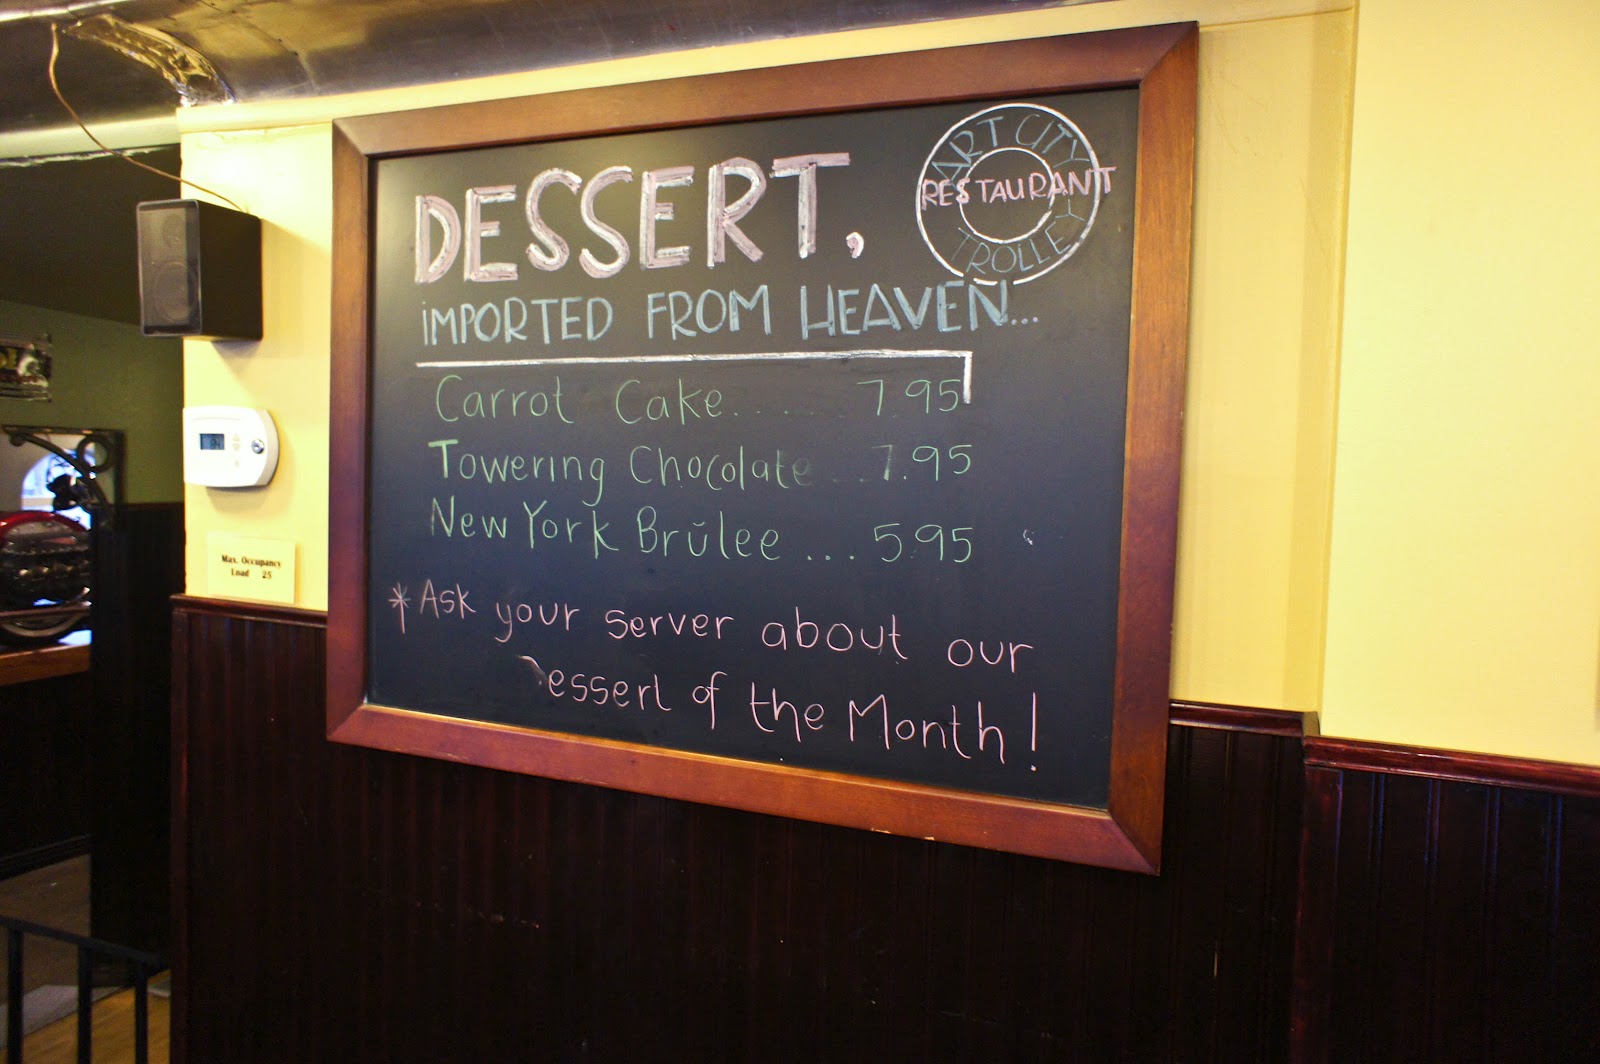 DESSERT,
IMPORTED FROM HEAVEN...
ART CITY
RESTAURANT
TROLLEY
Carrot Cake....... 7.95
Towering Chocolate ... 7.95
New York Brŭlee ... 5.95
*Ask your server about our
Dessert of the Month!
Max. Occupancy
Load 25